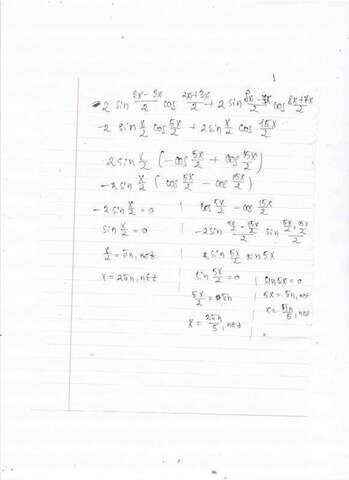 1
-2 sin (2x-3x)/2 cos (2x+3x)/2 + 2 sin (8x-7x)/2 cos (8x+7x)/2
-2 sin x/2 cos 5x/2 + 2 sin x/2 cos 15x/2
2 sin x/2 (-cos 5x/2 + cos 15x/2)
-2 sin x/2 (cos 5x/2 - cos 15x/2)
-2 sin x/2 = 0 | cos 5x/2 - cos 15x/2
sin x/2 = 0 | -2 sin
x/2 = πn, n∈z | 2 sin 5x/2 sin 5x
x = 2πn, n∈z | sin 5x/2 = 0 | sin 5x = 0
5x/2 = πn | 5x = πn, n∈z
x = 2πn/5, n∈z | x = πn/5, n∈z